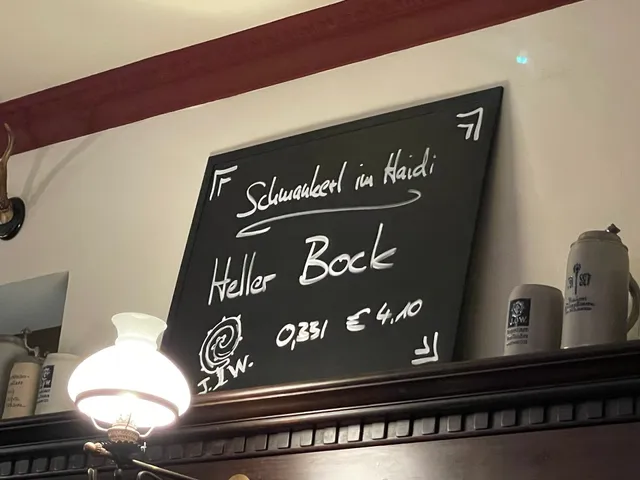 Schmankerl im Haidi
Heller Bock
0,33l € 4,10
J.&W.